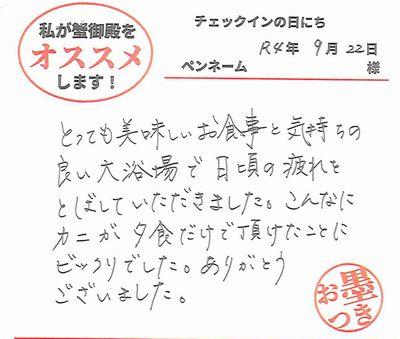 私が蟹御殿を
オススメ
します！
チェックインの日にち
R4年 9月 22日
ペンネーム 様
とっても美味しいお食事と気持ちの
良い大浴場で日頃の疲れを
とばしていただきました。こんなに
カニが夕食だけで頂けたことに
ビックリでした。ありがとう
ございました。
お墨つき